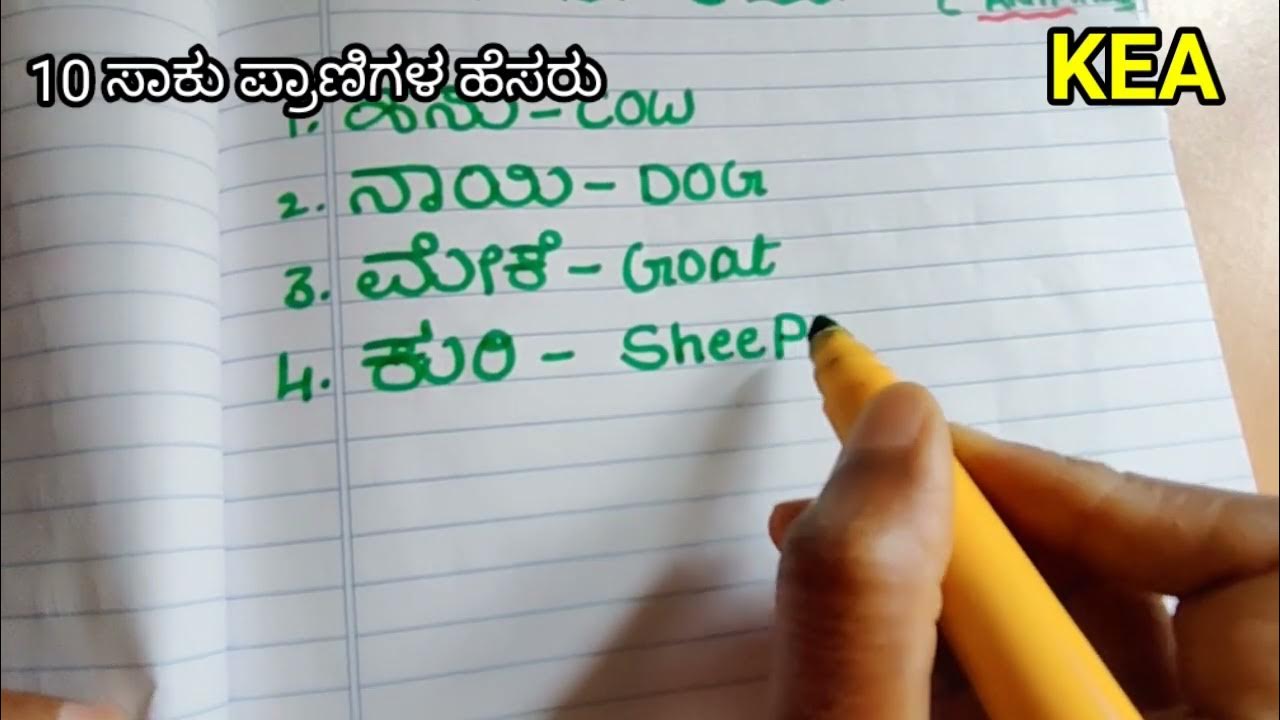 10 ಸಾಕು ಪ್ರಾಣಿಗಳ ಹೆಸರು
KEA
1. ಹಸು - COW
2. ನಾಯಿ - DOG
3. ಮೇಕೆ - Goat
4. ಕುರಿ - SheeP